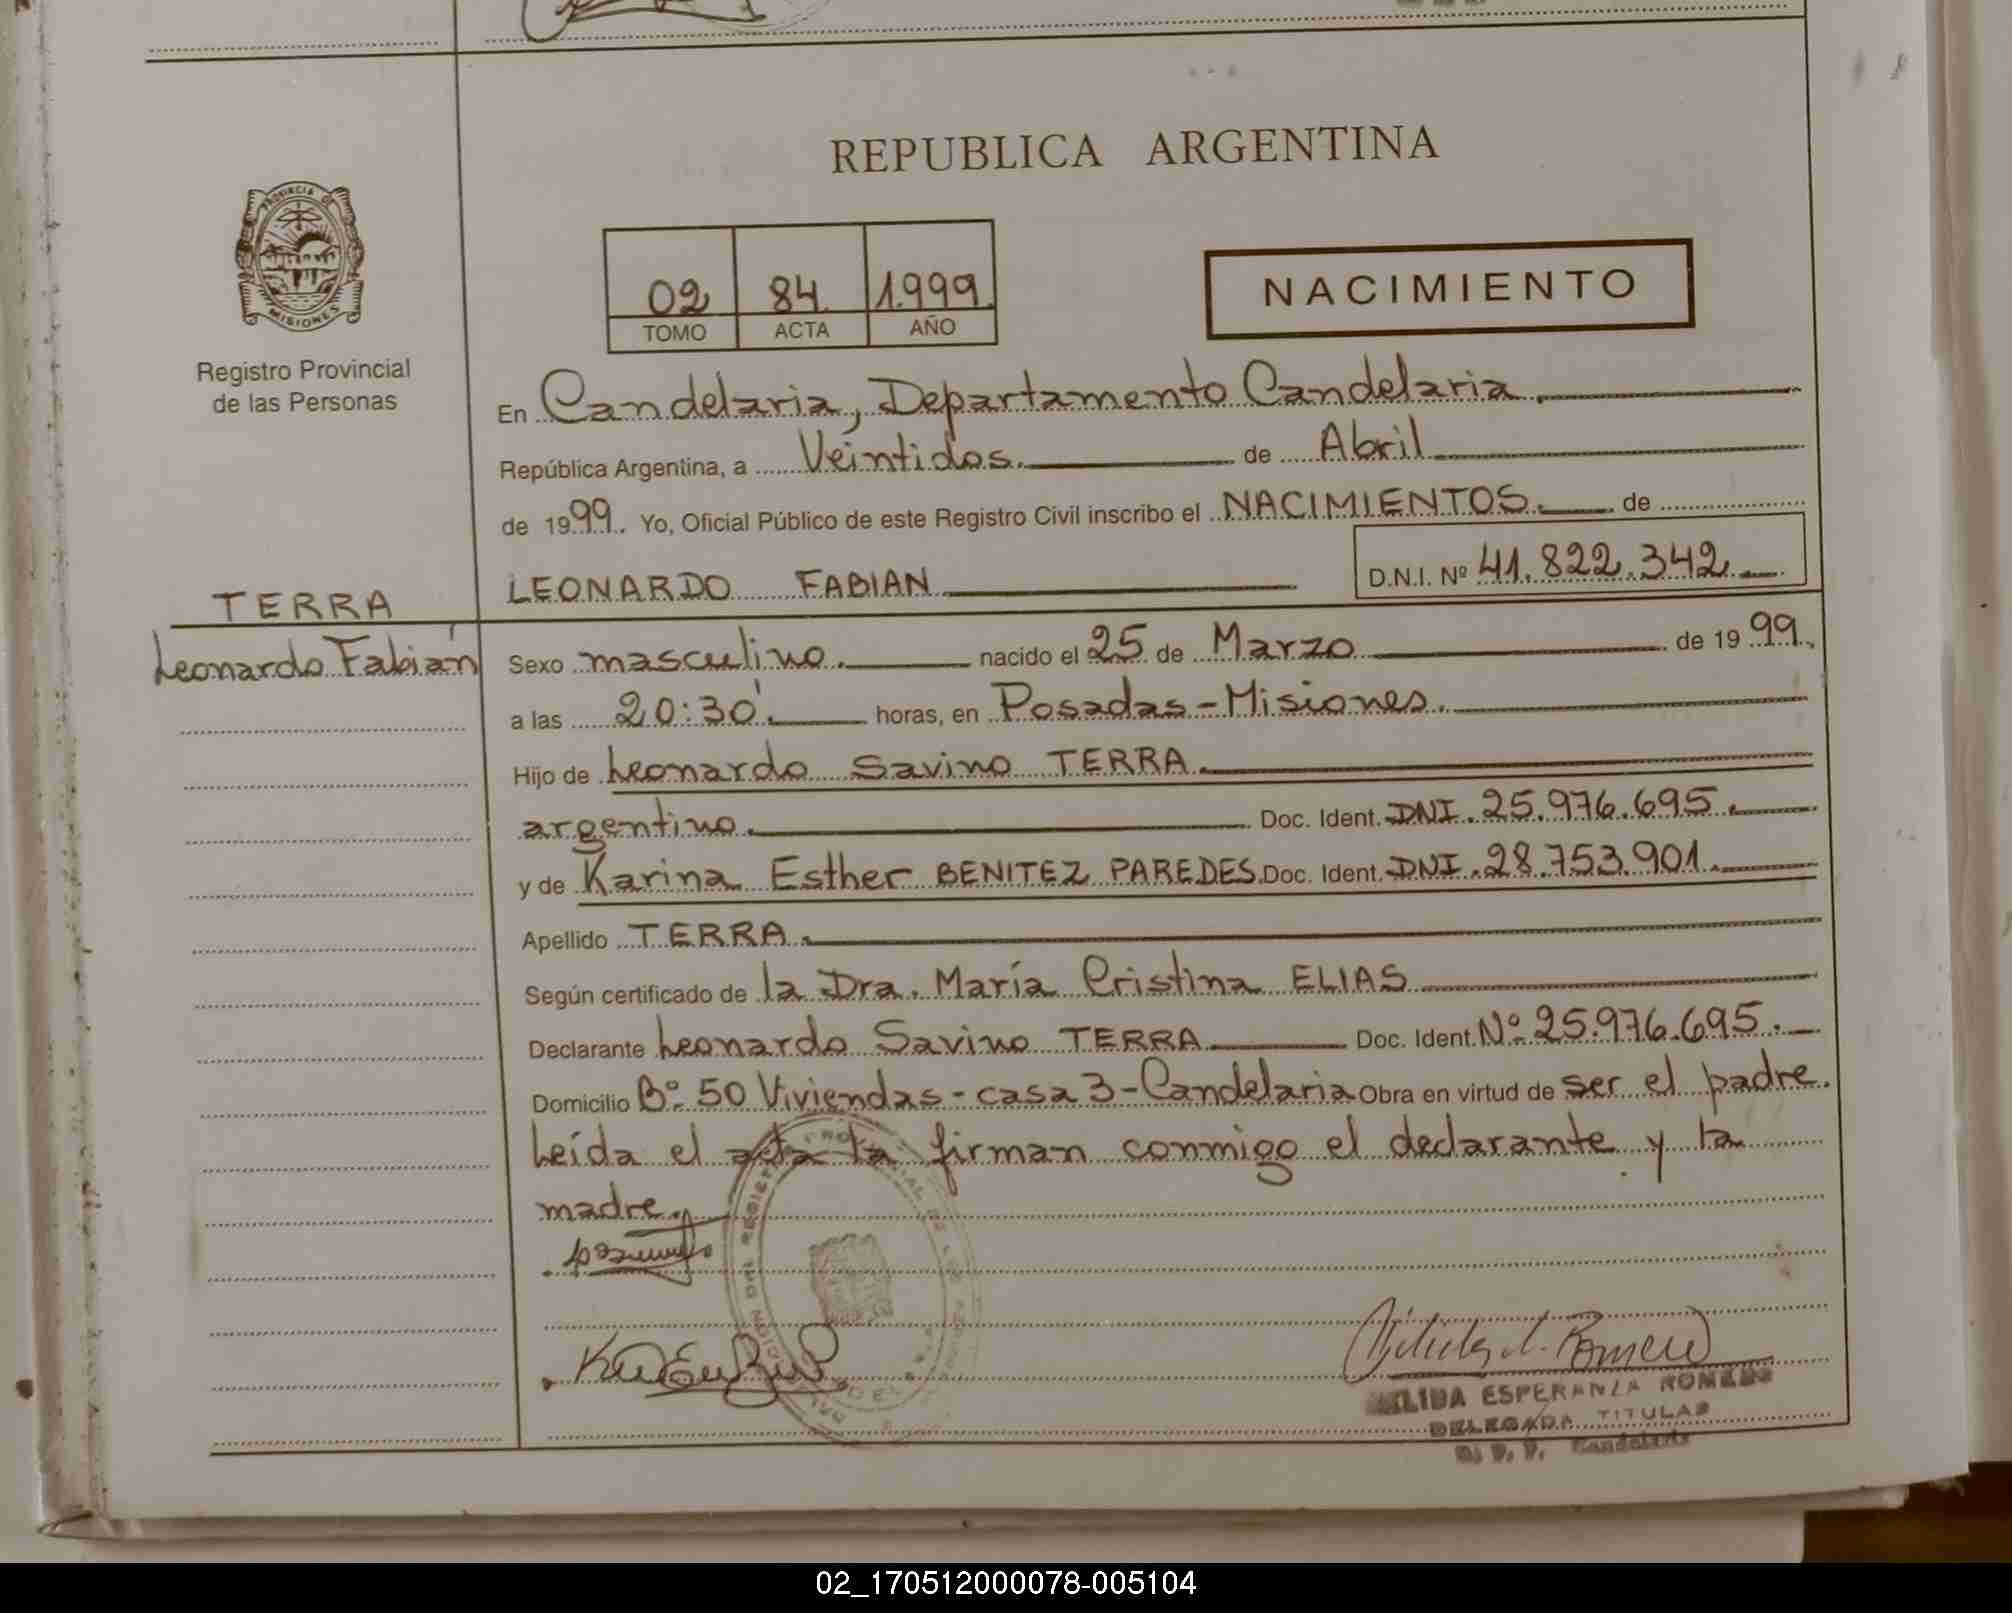 REPUBLICA ARGENTINA
PROVINCIA DE
MISIONES
Registro Provincial
de las Personas
02 84 1.999
TOMO ACTA AÑO
NACIMIENTO
En Candelaria, Departamento Candelaria
República Argentina, a Veintidos. de Abril
de 1999. Yo, Oficial Público de este Registro Civil inscribo el NACIMIENTOS. de
LEONARDO FABIAN D.N.I. Nº 41.822.342
TERRA
Leonardo Fabián
Sexo masculino. nacido el 25 de Marzo de 1999.
a las 20:30'. horas, en Posadas-Misiones.
Hijo de Leonardo Savino TERRA.
argentino. Doc. Ident. DNI. 25.976.695.
y de Karina Esther BENITEZ PAREDES. Doc. Ident. DNI. 28.753.901.
Apellido TERRA.
Según certificado de la Dra. María Cristina ELIAS
Declarante Leonardo Savino TERRA Doc. Ident. Nº 25.976.695.
Domicilio Bº 50 Viviendas - casa 3 - Candelaria Obra en virtud de ser el padre.
Leída el acta la firman conmigo el declarante y la
madre.
ESPERANZA ROMERO
DELEGADA TITULAR
Candelaria
02_170512000078-005104